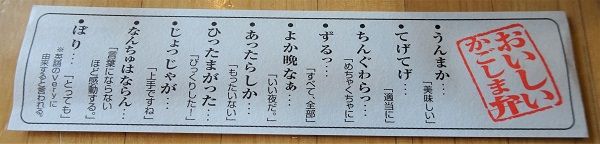 おいしい
かごしま弁
・うんまか…
「美味しい」
・てげてげ…
「適当に」
・ちんぐゎらっ…
「めちゃくちゃに」
・ずるっ…
「すべて、全部」
・よか晩なぁ…
「いい夜だ。」
・あったらしか…
「もったいない」
・ひったまがった…
「びっくりした!」
・じょっじゃが…
「上手ですね」
・なんちゅはならん…
「言葉にならない
ほど感動する。」
・ぼり…「とっても」
※英語のveryに
由来すると言われる。